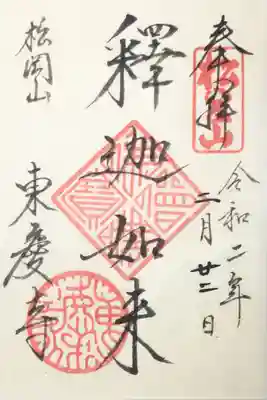 奉拝
令和二年
二月廿二日
釋迦如来
松岡山
東慶寺